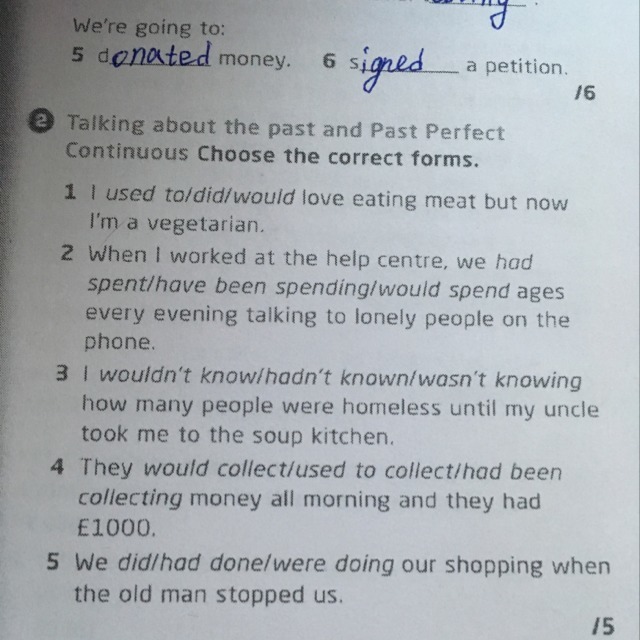 We're going to:
5 donated money. 6 signed a petition.
/6
2 Talking about the past and Past Perfect
Continuous Choose the correct forms.
1 I used to/did/would love eating meat but now
I'm a vegetarian.
2 When I worked at the help centre, we had
spent/have been spending/would spend ages
every evening talking to lonely people on the
phone.
3 I wouldn't know/hadn't known/wasn't knowing
how many people were homeless until my uncle
took me to the soup kitchen.
4 They would collect/used to collect/had been
collecting money all morning and they had
£1000.
5 We did/had done/were doing our shopping when
the old man stopped us.
/5